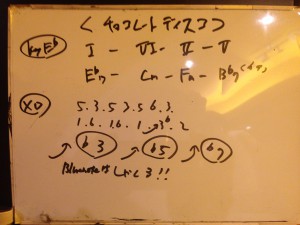 < チョコレートディスコ >
Key E♭ I - VI - II - V
E♭7 - Cm - Fm - B♭7
メロ 5.3.5 3.5 6.3.
1.6. 1.6. 1 →3♭.2
♭3 ♭5 ♭7
Bluenoteは !!